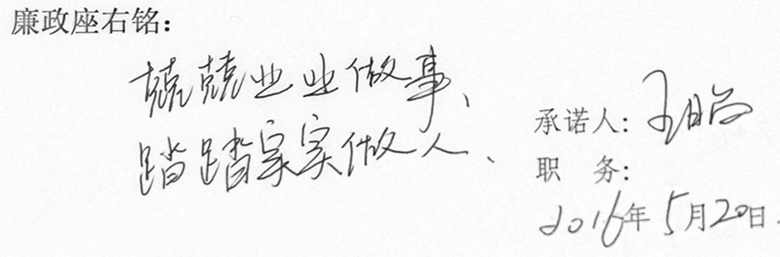 廉政座右铭：
兢兢业业做事、
踏踏实实做人、
承诺人：王
职 务：
2016年5月20日.